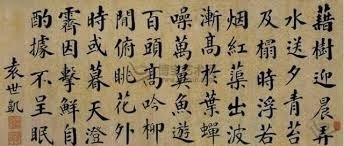 藉樹迎晨弄
水送夕青苔
及榻前雨浮
烟紅蕖出波
漸高於葉蟬
噪萬叢魚遊
百頭高吟柳
間俯眺花外
時或暮天澄
霽因擊鮮自
酌據不呈眠
袁世凱